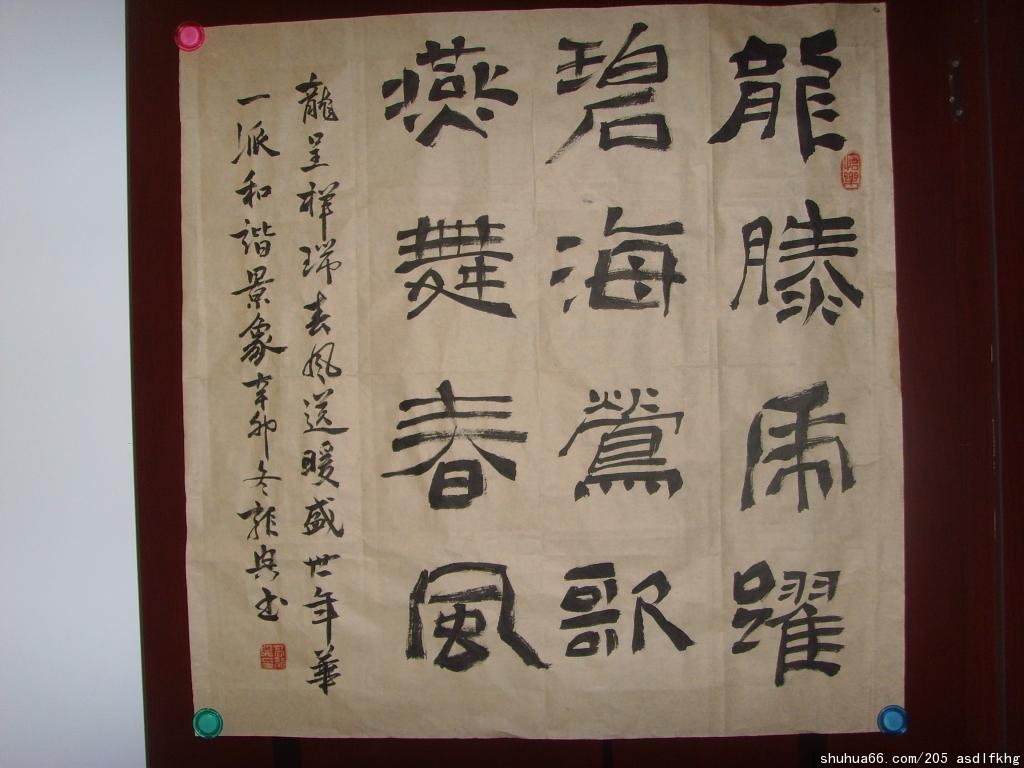 龍滕虎躍
碧海鶯歌
燕舞春風
龍呈祥瑞春風送暖盛世年華
一派和諧景象辛卯冬龍興书
shuhua66.com/205 asdlfkhg